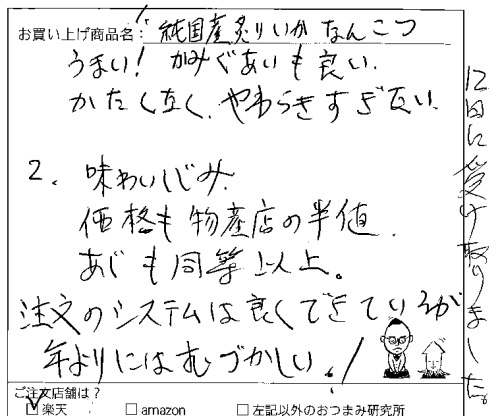 お買い上げ商品名: 1 純国産炙りいかなんこつ
うまい! かみぐあいも良い.
かたくなく、やわらきすぎない
2. 味わいじみ.
価格も物産店の半値.
あじも同等以上。
注文のシステムは良くできているが
年よりにはむづかしい!
12日に受け取りました。
ご注文店舗は?
☑ 楽天 □ amazon □ 左記以外のおつまみ研究所